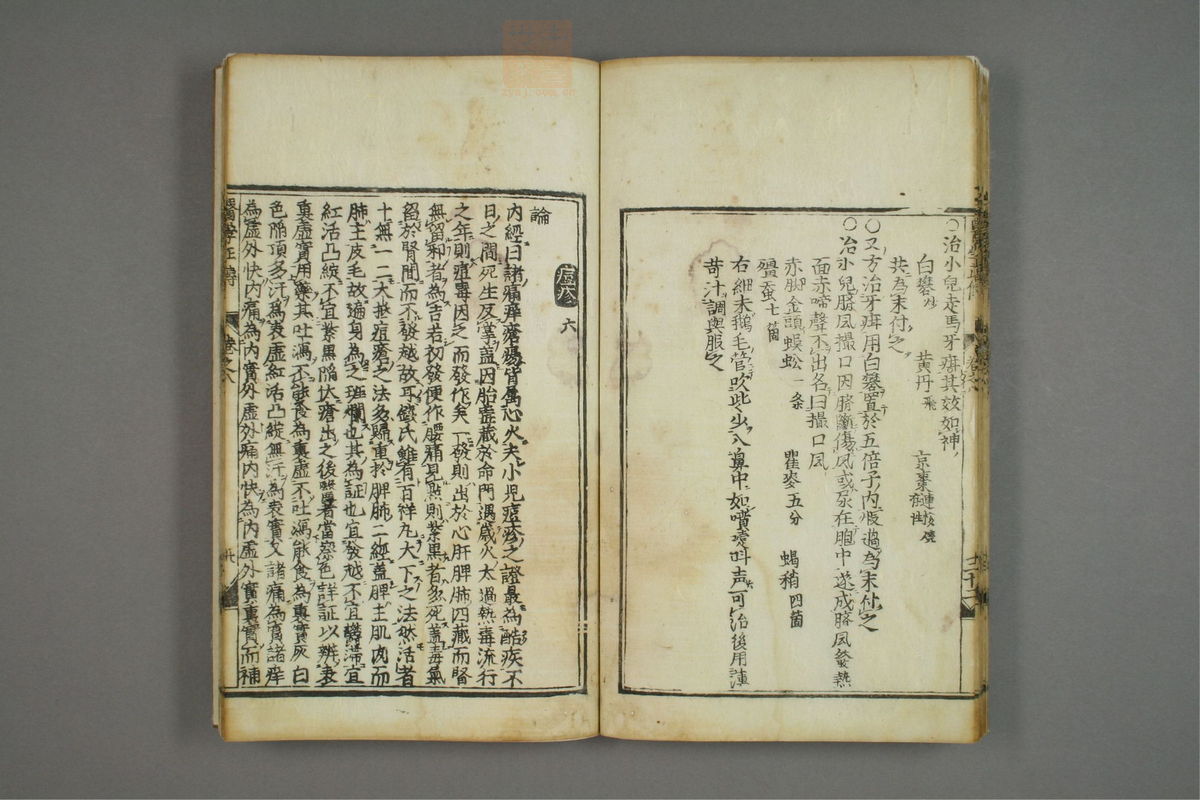 ○治小兒走馬牙疳其效如神
白礬 黃丹飛
共為末付之
○又方治牙疳用白礬置於五倍子內煅過為末付之
○治小兒臍風撮口因臍斷傷風或尿在胞中遂成臍風發熱
面赤啼聲不出名曰撮口風
赤脚金頭蜈蚣一条 瞿麥五分 蝎稍四箇
殭蚕七箇
右細末鵝毛管吹些少入鼻中如嚏噴叫声可治後用薄
苛汁調與服之
痘疹 六
論
內經曰諸痛痒瘡瘍皆屬心火夫小児痘疹之證最為酷疾不
日之間死生反掌蓋因胎毒藏於命門遇歲火太過熱毒流行
之年則痘毒因之而發作矣一發則出於心肝脾肺四藏而腎
無留邪者為吉若初發便作腰痛見點則紫黑者多死蓋毒氣
留於腎間而不發越故耳錢氏雖有百祥丸大下之法然活者
十無一二大抵痘瘡之法多歸重於脾肺二經蓋脾主肌肉而
肺主皮毛故遍身為之斑爛也其為証也宜發越不宜鬱滯宜
紅活凸綻不宜紫黑陷伏瘡出之後醫者當察色詳証以辨表
裏虛實用藥其吐瀉不能食為裏虛不吐瀉能食為裏實灰白
色陷頂多汗為表虛紅活凸綻無汗為表實又諸痛為實諸痒
為虛外快內痛為內實外虛外痛內快為內虛外實裏實而補
醫學正傳 卷之八